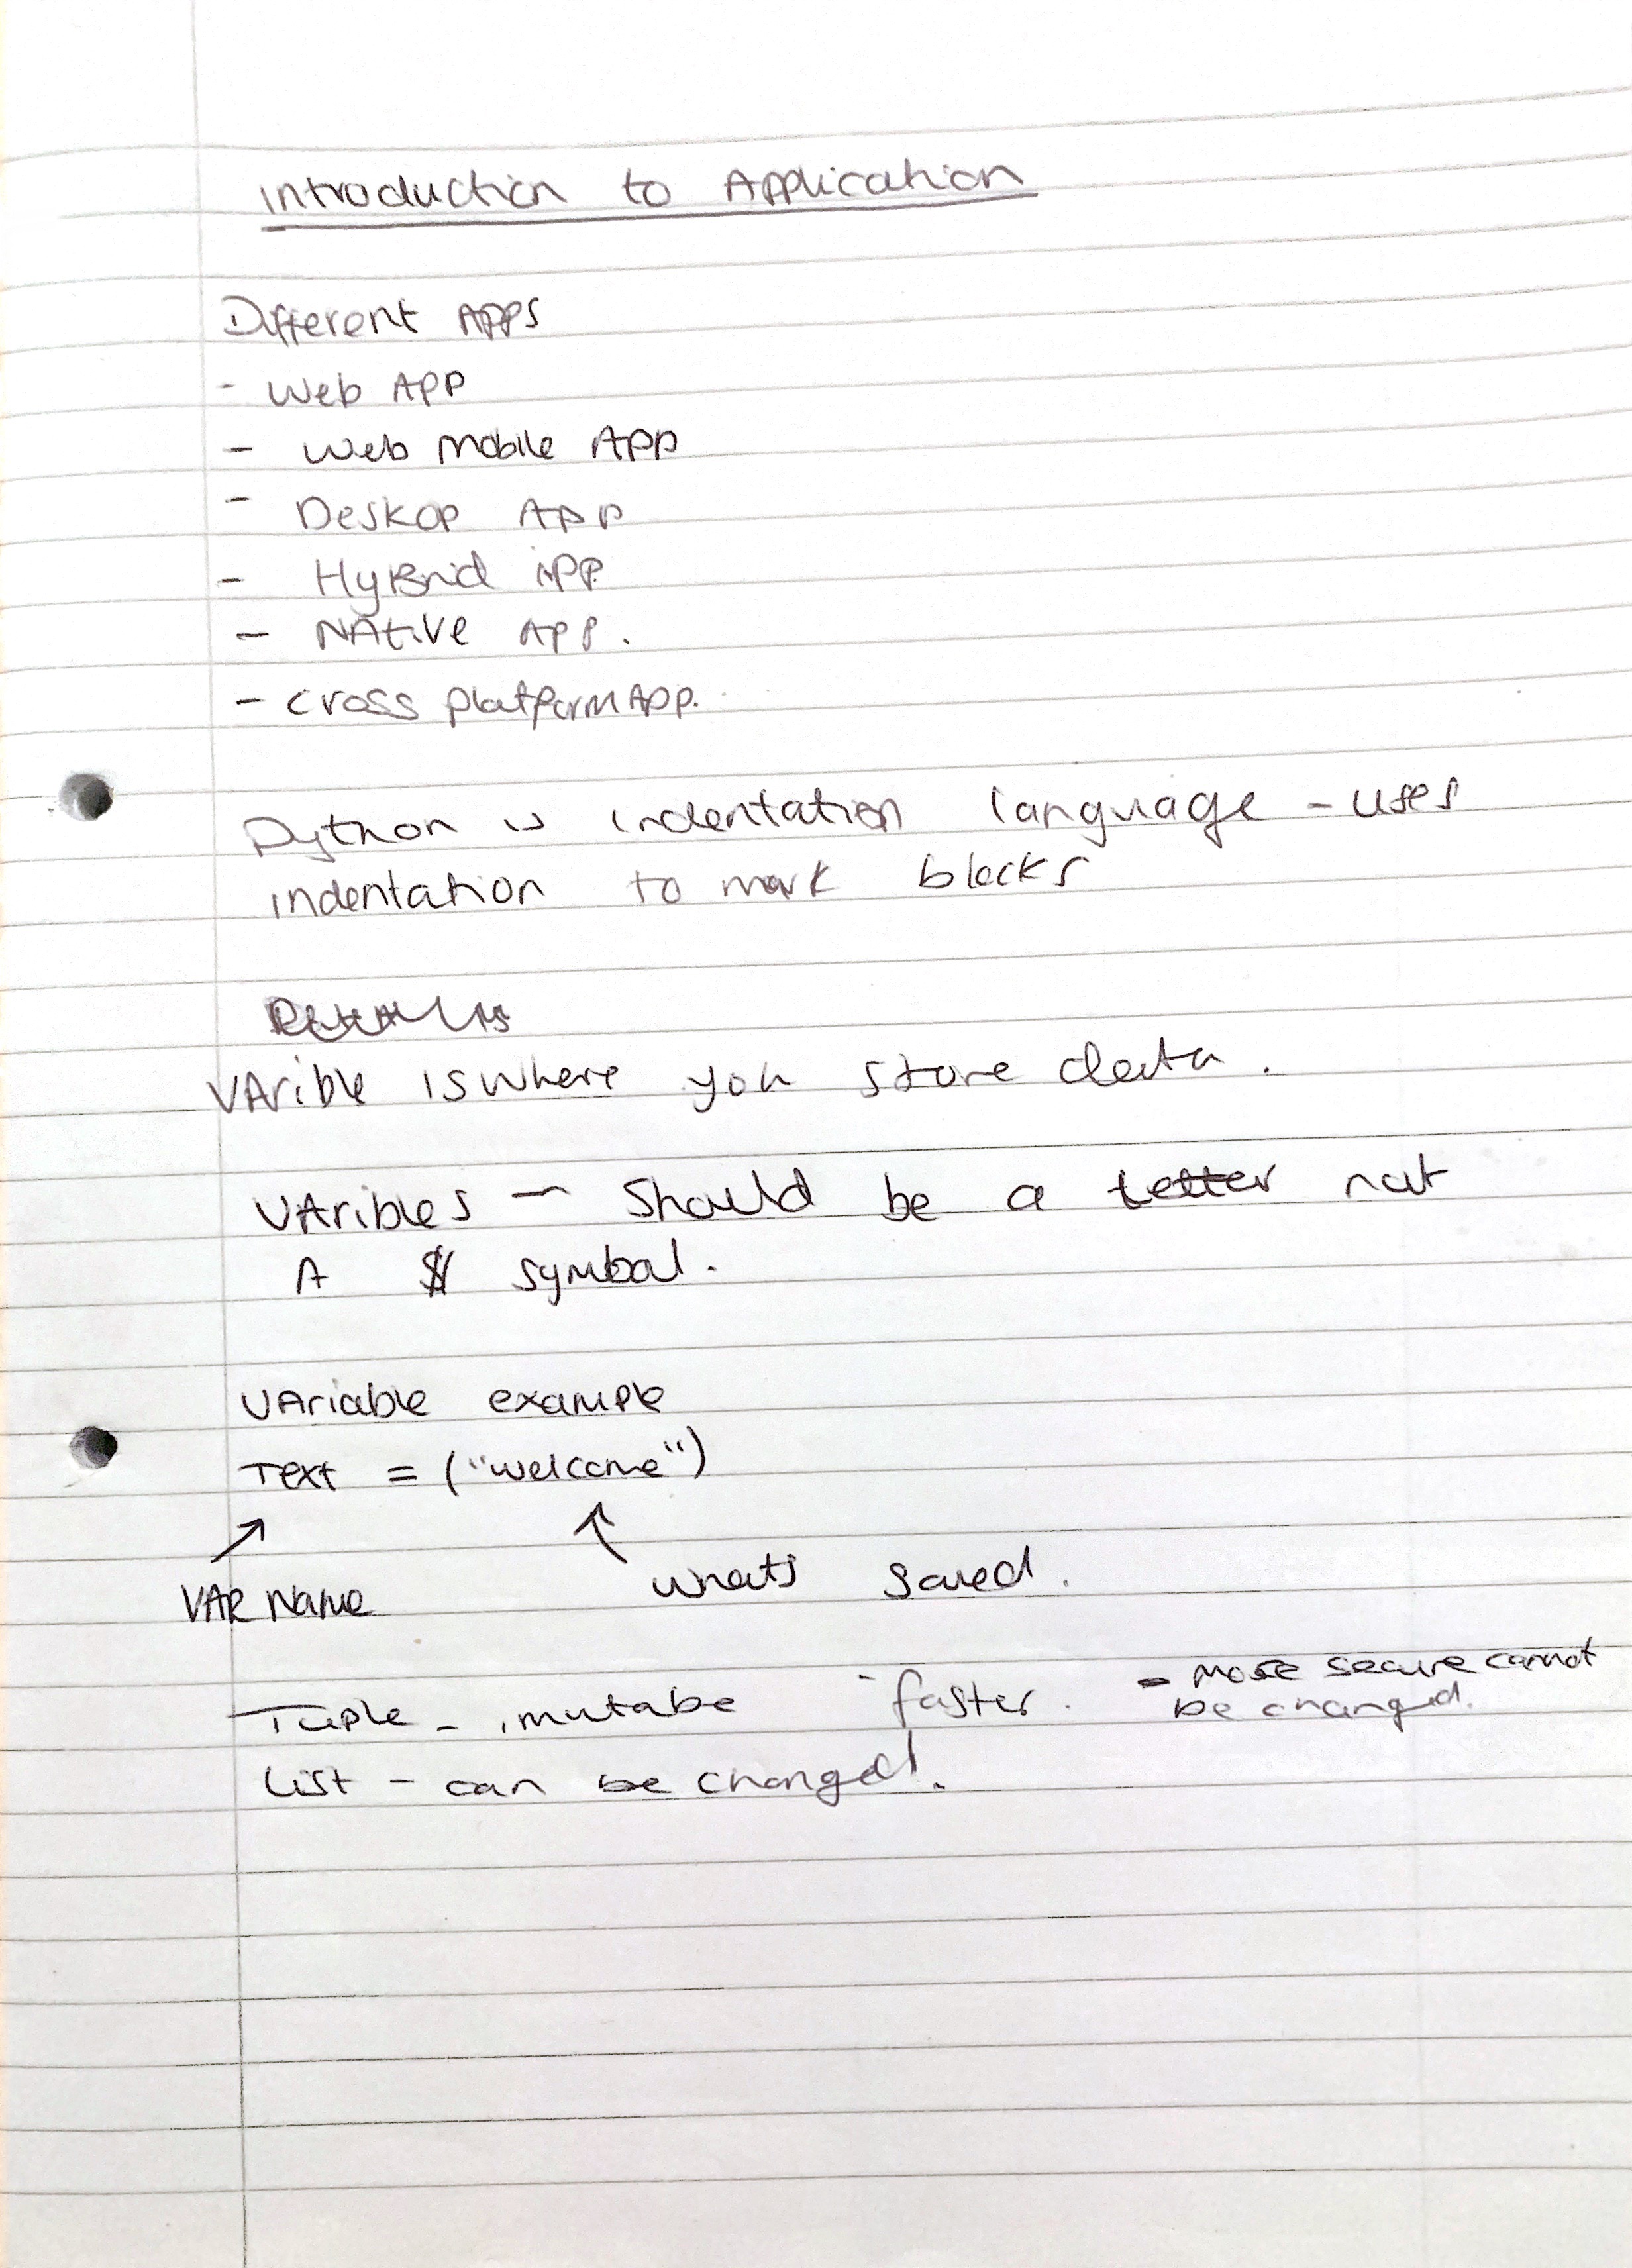 Introduction to Application
Different APPS
- Web APP
- Web mobile APP
- Deskop APP
- HyBrid APP
- NAtive APP.
- cross platform APP.
Python is indentation language - uses
indentation to mark blocks
VArible is where you store data.
VAribles - Should be a letter not
A $ symbol.
VAriable example
Text = ("welcome")
VAR Name
whats saved.
Tuple - imutabe - faster. - more secure cannot
be changed.
List - can be changed.